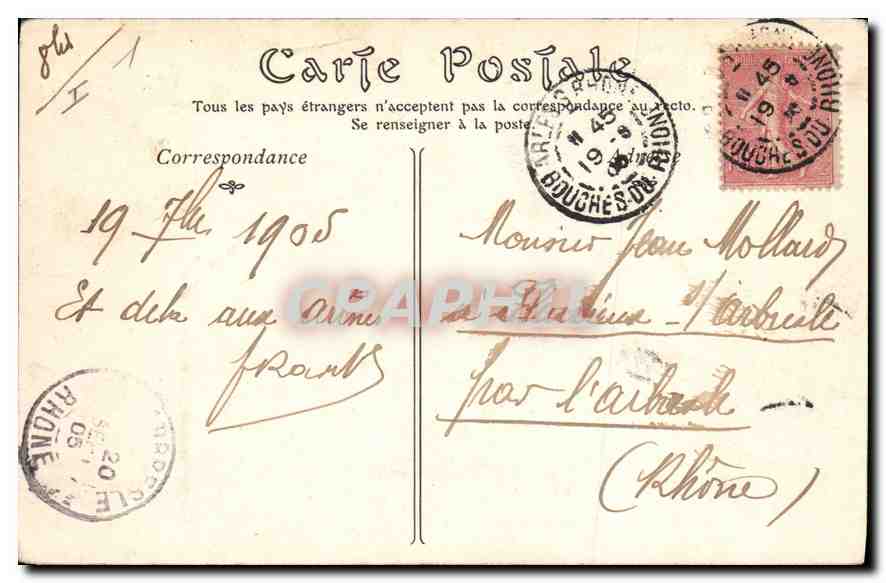 Carte Postale
Tous les pays étrangers n'acceptent pas la correspondance au recto.
Se renseigner à la poste.
Correspondance
Adresse
ARLES-S-RHONE
11 45
19 -9
05
BOUCHES-DU-RHONE
45
19
BOUCHES-DU-RHONE
19 7bre 1905
Et de aux
Monsieur Jean Mollard
à s/ arbresle
par l'arbresle
(Rhône)
CRAPHIL
20
SEPT
05
RHONE